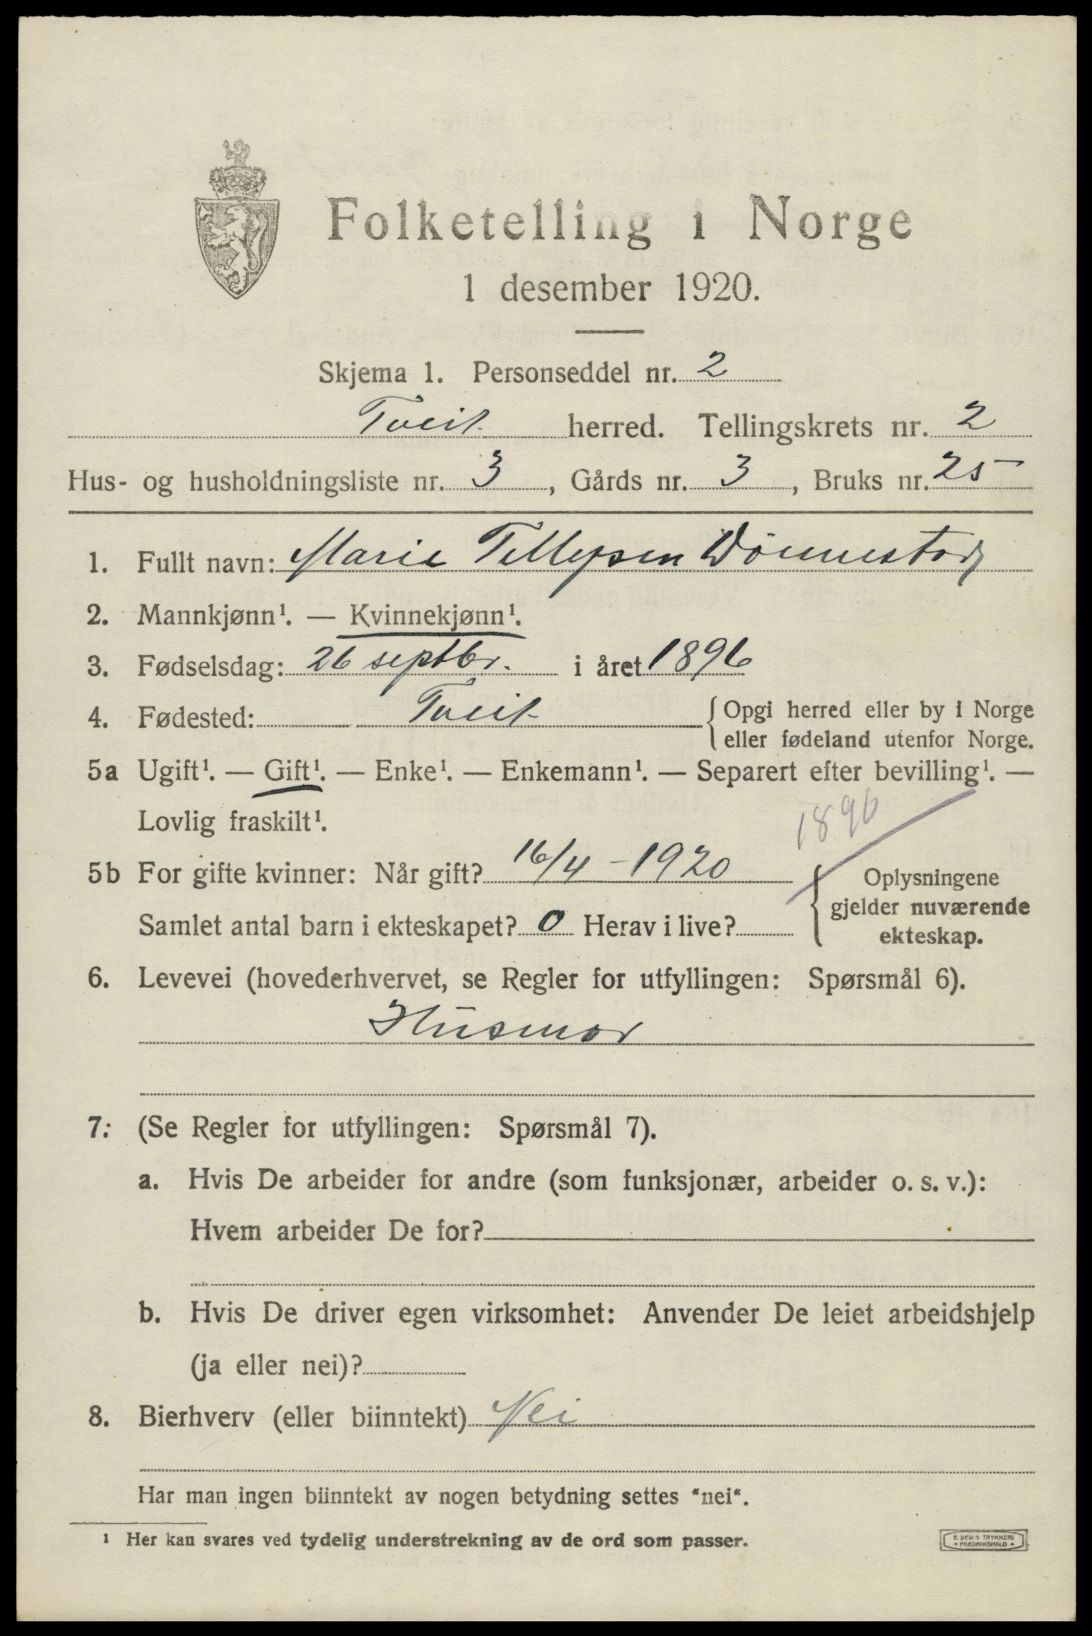 Folketelling i Norge
1 desember 1920.
Skjema 1. Personseddel nr. 2
Tveit herred. Tellingskrets nr. 2
Hus- og husholdningsliste nr. 3, Gårds nr. 3, Bruks nr. 25
1. Fullt navn: Marie Tellefsen Dønnestad
2. Mannkjønn¹. — Kvinnekjønn¹.
3. Fødselsdag: 26 septbr. i året 1896
4. Fødested: Tveit {Opgi herred eller by i Norge
eller fødeland utenfor Norge.
5a Ugift¹. — Gift¹. — Enke¹. — Enkemann¹. — Separert efter bevilling¹. —
Lovlig fraskilt¹.
1896
5b For gifte kvinner: Når gift? 16/4 - 1920 { Oplysningene
gjelder nuværende
ekteskap.
Samlet antal barn i ekteskapet? 0 Herav i live?
6. Levevei (hovederhvervet, se Regler for utfyllingen: Spørsmål 6).
Husmor
7. (Se Regler for utfyllingen: Spørsmål 7).
a. Hvis De arbeider for andre (som funksjonær, arbeider o. s. v.):
Hvem arbeider De for?
b. Hvis De driver egen virksomhet: Anvender De leiet arbeidshjelp
(ja eller nei)?
8. Bierhverv (eller biinntekt) Nei
Har man ingen biinntekt av nogen betydning settes "nei".
¹ Her kan svares ved tydelig understrekning av de ord som passer.
E. SEM'S TRYKKERI
• FREDRIKSHALD •